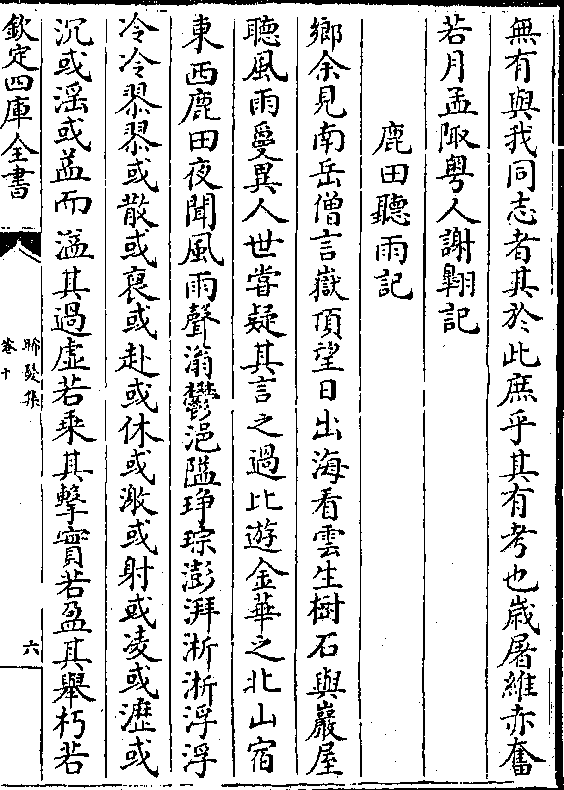 無有與我同志者其於此庶乎其有考也嵗屠維赤奮
若月孟陬粤人謝翺記
鹿田聽雨記
鄉余見南岳僧言嶽頂望日出海看雲生樹石與巖屋
聽風雨憂異人世嘗疑其言之過比遊金華之北山宿
東西鹿田夜聞風雨聲滃鬱浥隘琤琮澎湃淅淅浮浮
冷冷翏翏或散或裒或赴或休或激或射或凌或瀝或
沉或滛或益而溢其過虚若乘其擊實若盈其舉朽若
欽定四庫全書
晞髪集
卷十
六